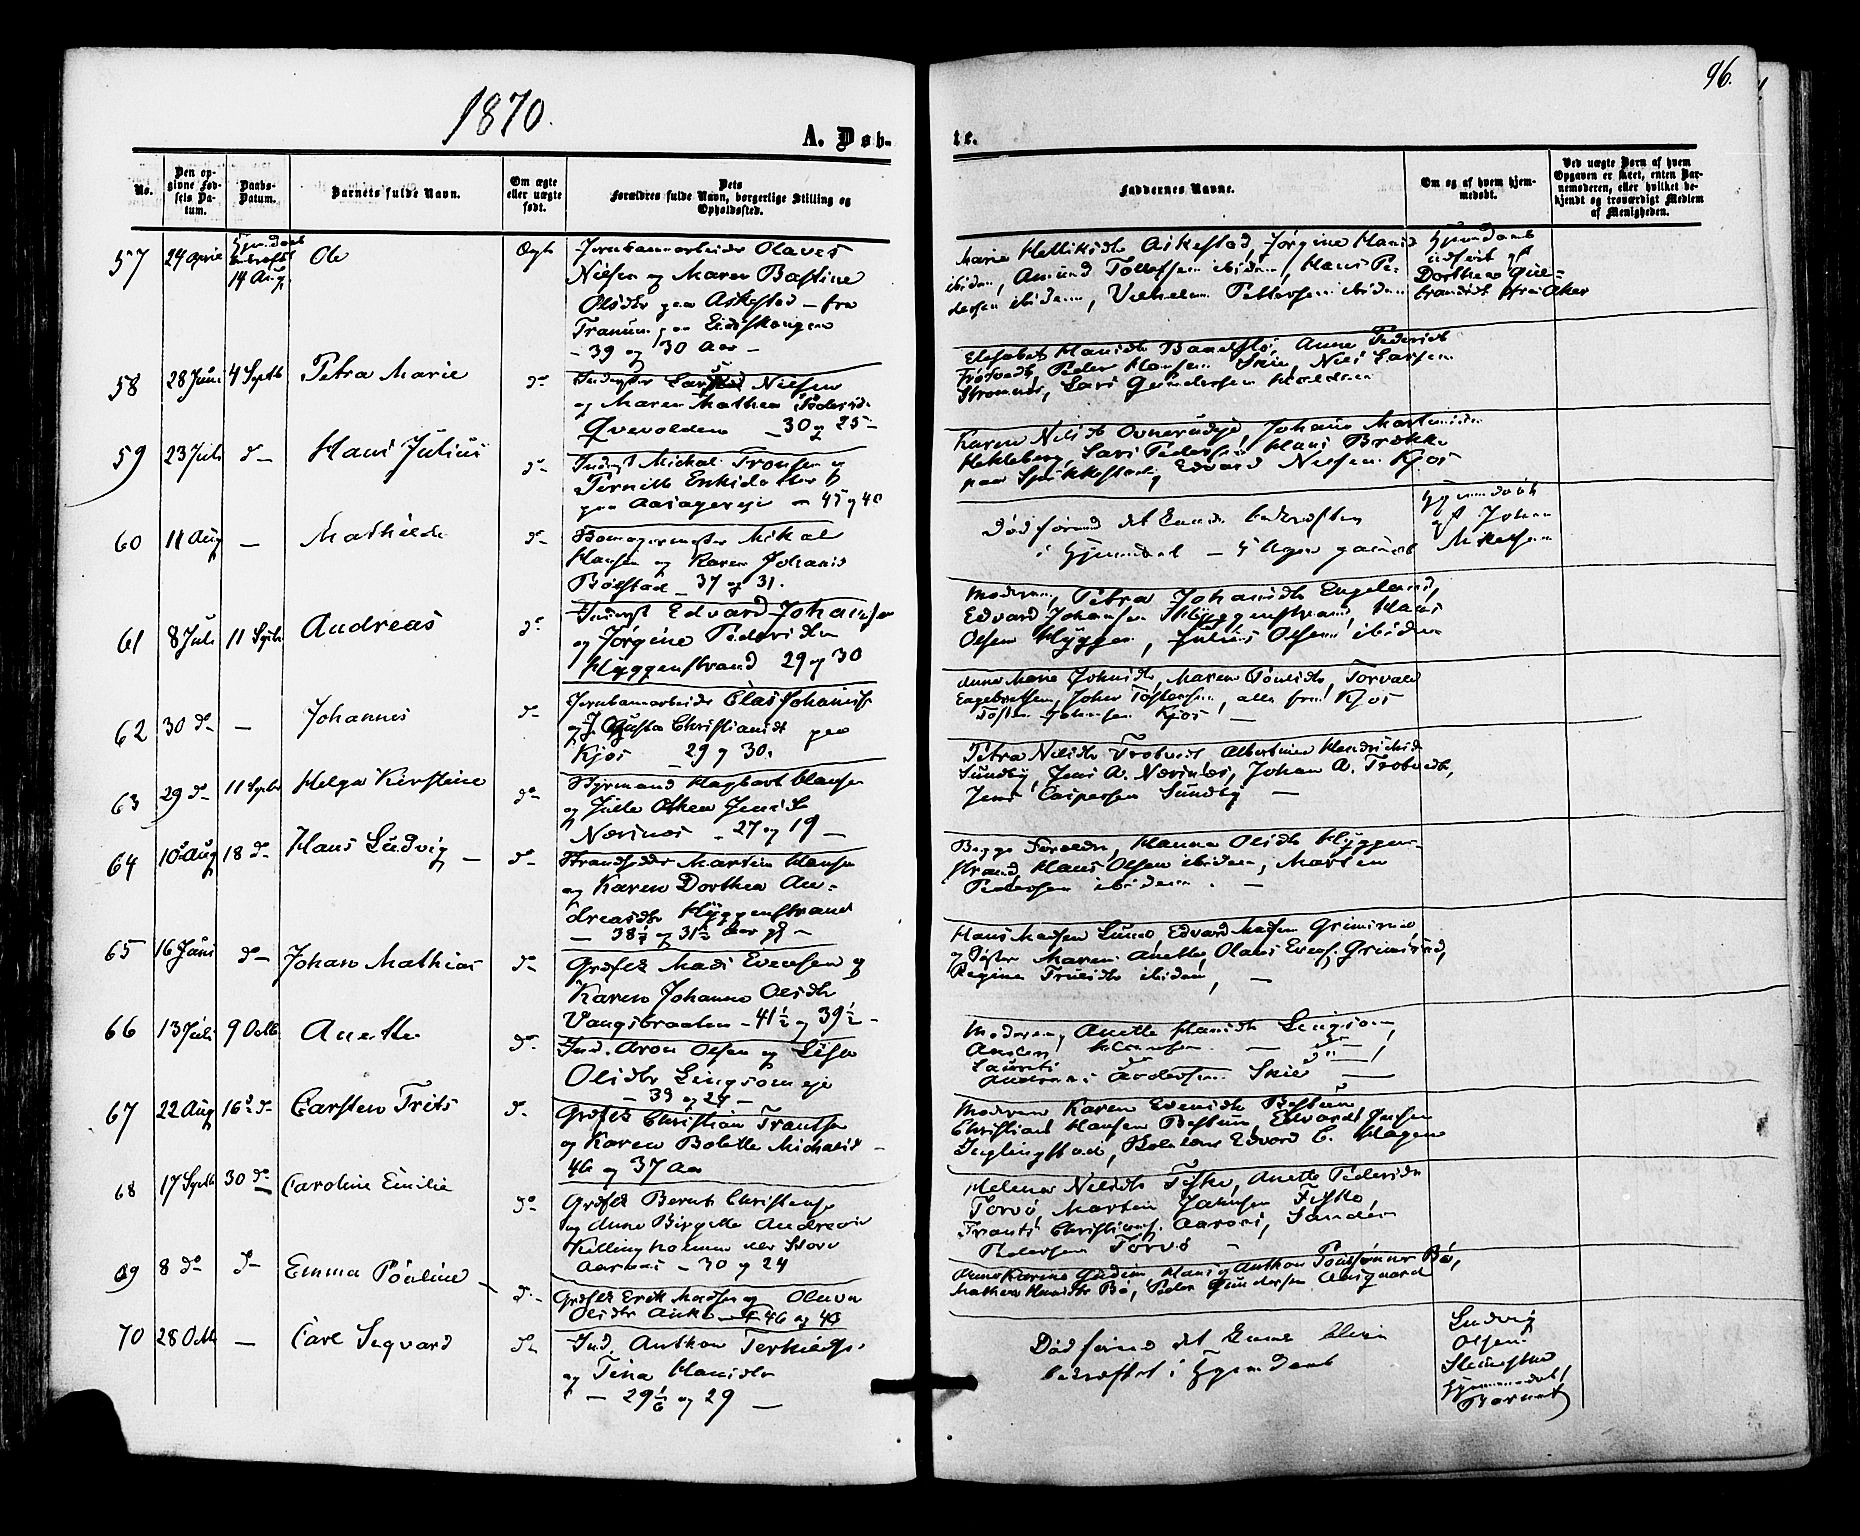 96.
1870.
A. Døb-
te.
No.
Den op-
givne Fød-
sels Da-
tum.
Daabs-
Datum.
Barnets fulde Navn.
Om ægte
eller uægte
født.
Dets
Forældres fulde Navn, borgerlige Stilling og
Opholdssted.
Faddernes Navne.
Om og af hvem hjem-
medøbt.
Ved uægte Børn af hvem
Opgaven er skeet, enten Bar-
nemoderen, eller hvilket be-
kjendt og troværdigt Medlem
af Menigheden.
57
29 April
14 Aug.
Ole
Ægte
Jernbanearbeider Olaves
Nielsen og Maren Bastine
Olsdtr paa Askestad - fra
Tranum paa Eidskongen
- 39 og 30 Aar -
Marie Helliksdtr Askestad, Jørgine Hansd
ibidem, Amund Tollefsen ibidem, Hans Pe-
dersen ibidem, Vilhelm Pettersen ibidem
Hjemdøbt
udført af
Dorthea Gul-
brandsdt fra Aker
58
28 Juni
4 Septb
Petra Marie
do
Inderster Lars Nielsen
og Maren Mathea Pedersd.
Qvevolden - 30 og 25 -
Elisabet Hansdtr
Anne Pedersdt
Frøtvedt, Peder Hansen Skie, Niels Larsen
Strømnæs, Lars Gundersen Holdene
59
23 Juli
do
Hans Julius
do
Inderst Mickal Tronsen og
Pernille Eriksdatter
paa Aasagereie - 45 og 40
Karen Nilsdtr Ovnerudeje, Johans Martinsdtr
Hekleberg, Lars Pedersen, Hans Brække
paa Spikkestad, Edvard Nielsen Kjos
60
11 Aug
-
Mathilde
do
Mikal
Hansen og Karen Johansd
Bølstad - 37 og 31.
Død forend det kunde bekræftes
i Hjemdaab
Hjemdøbt
af Johan
Mikelsen
61
8 Juli
11 Septb
Andreas
do
Inderst Edvard Johansen
og Jørgine Pedersdtr
Hyggenstrand 29 og 30
Moderen, Petra Johansdtr Engelund,
Edvard Johansen Hyggenstrand, Hans
Olsen Hyggen, Julius Olsen ibidem
62
30 do
-
Johannes
do
Jernbanearbeider Clas Johannes
og Gusta Christiansdt paa
Kjos - 29 og 30.
Anne Marie Johnsdtr, Maren Povlsdtr, Torvald
Engebretsen, Johan Tostensen, alle fra Kjos
Tosten Johnsen Kjos -
63
29 do
11 Septb
Helga Kirstine
do
Styrmand Hagbart Hansen
og Julle Othea Jensdtr
Næsnæs - 27 og 19 -
Petra Nilsdtr Frotvedt, Albertine Hendriksd
Sundby, Jens A. Næsnæs, Johan A. Frotvedt,
Jens Caspersen Sundby -
64
10 Aug
18 do
Hans Ludvig -
do
Strandsidder Martin Hansen
og Karen Dorthea An-
dreasdtr Hyggenstrand
- 38 1/4 og 31 1/2 Aar gl -
Begge Foreldre, Hanna Olsdtr Hyggen-
strand, Hans Olsen ibidem, Morten
Pedersen ibidem. -
65
16 Juni
do
Johan Mathias
do
Grdfsk Mads Evensen og
Karen Johanne Olsdtr
Vangsbraaten - 41 1/2 og 39 1/2 -
Hans Madsen Lund, Edvard Madsen Grimsrud
og Søster Maren Anette, Olaus Evens. Grimsrud,
Regine Truelsdtr ibidem, -
66
13 Juli
9 Octb
Anette
do
Ind. Aron Olsen og Lise
Olsdtr Lingsomeje
- 39 og 24 -
Moderen, Anette Hansdtr Lingsom,
Laurits
Andreas Andersen Skie
67
22 Aug
16 do
Carsten Frits
do
Grdfsk Christian Frantsen
og Karen Bolette Michalsdt -
46 og 37 Aar
Moderen Karen Evensdtr Bestun
Christian Hansen Bestun, Edvardt Jensen
Inglingstad, Edvard C. Hagen
68
17 Septb
30 do
Caroline Emilie
do
Grdfsk Bernt Christensen
og Anne Birgitte Andreasd
Killingholmen eller Store
Aarnæs - 30 og 24
Helene Nilsdtr Fiske, Anette Pedersdtr
Torvø, Martin Jakobsen Fiske,
Frants Christians. Aarnæs, Sander
Pedersen Torvø -
69
8 do
do
Emma Povline -
do
Grdfsk Erik Madsen og Olava
Olsdtr Auke - 46 og 43
Anne Karine Gudim, Hans og Anthon Povlsønner Bø,
Mathea Hansdtr Bø, Peder Gundersen Aasgaard
70
28 Octb
-
Carl Segvard
do
Ind. Anthon Terkilds.
og Tina Hansdtr
- 29 1/6 og 29 -
Død forend det kunde blive
bekræftet i Hjemdaab
Ludvig
Olsen
Slemestad
hjemmedøbt
Barnet